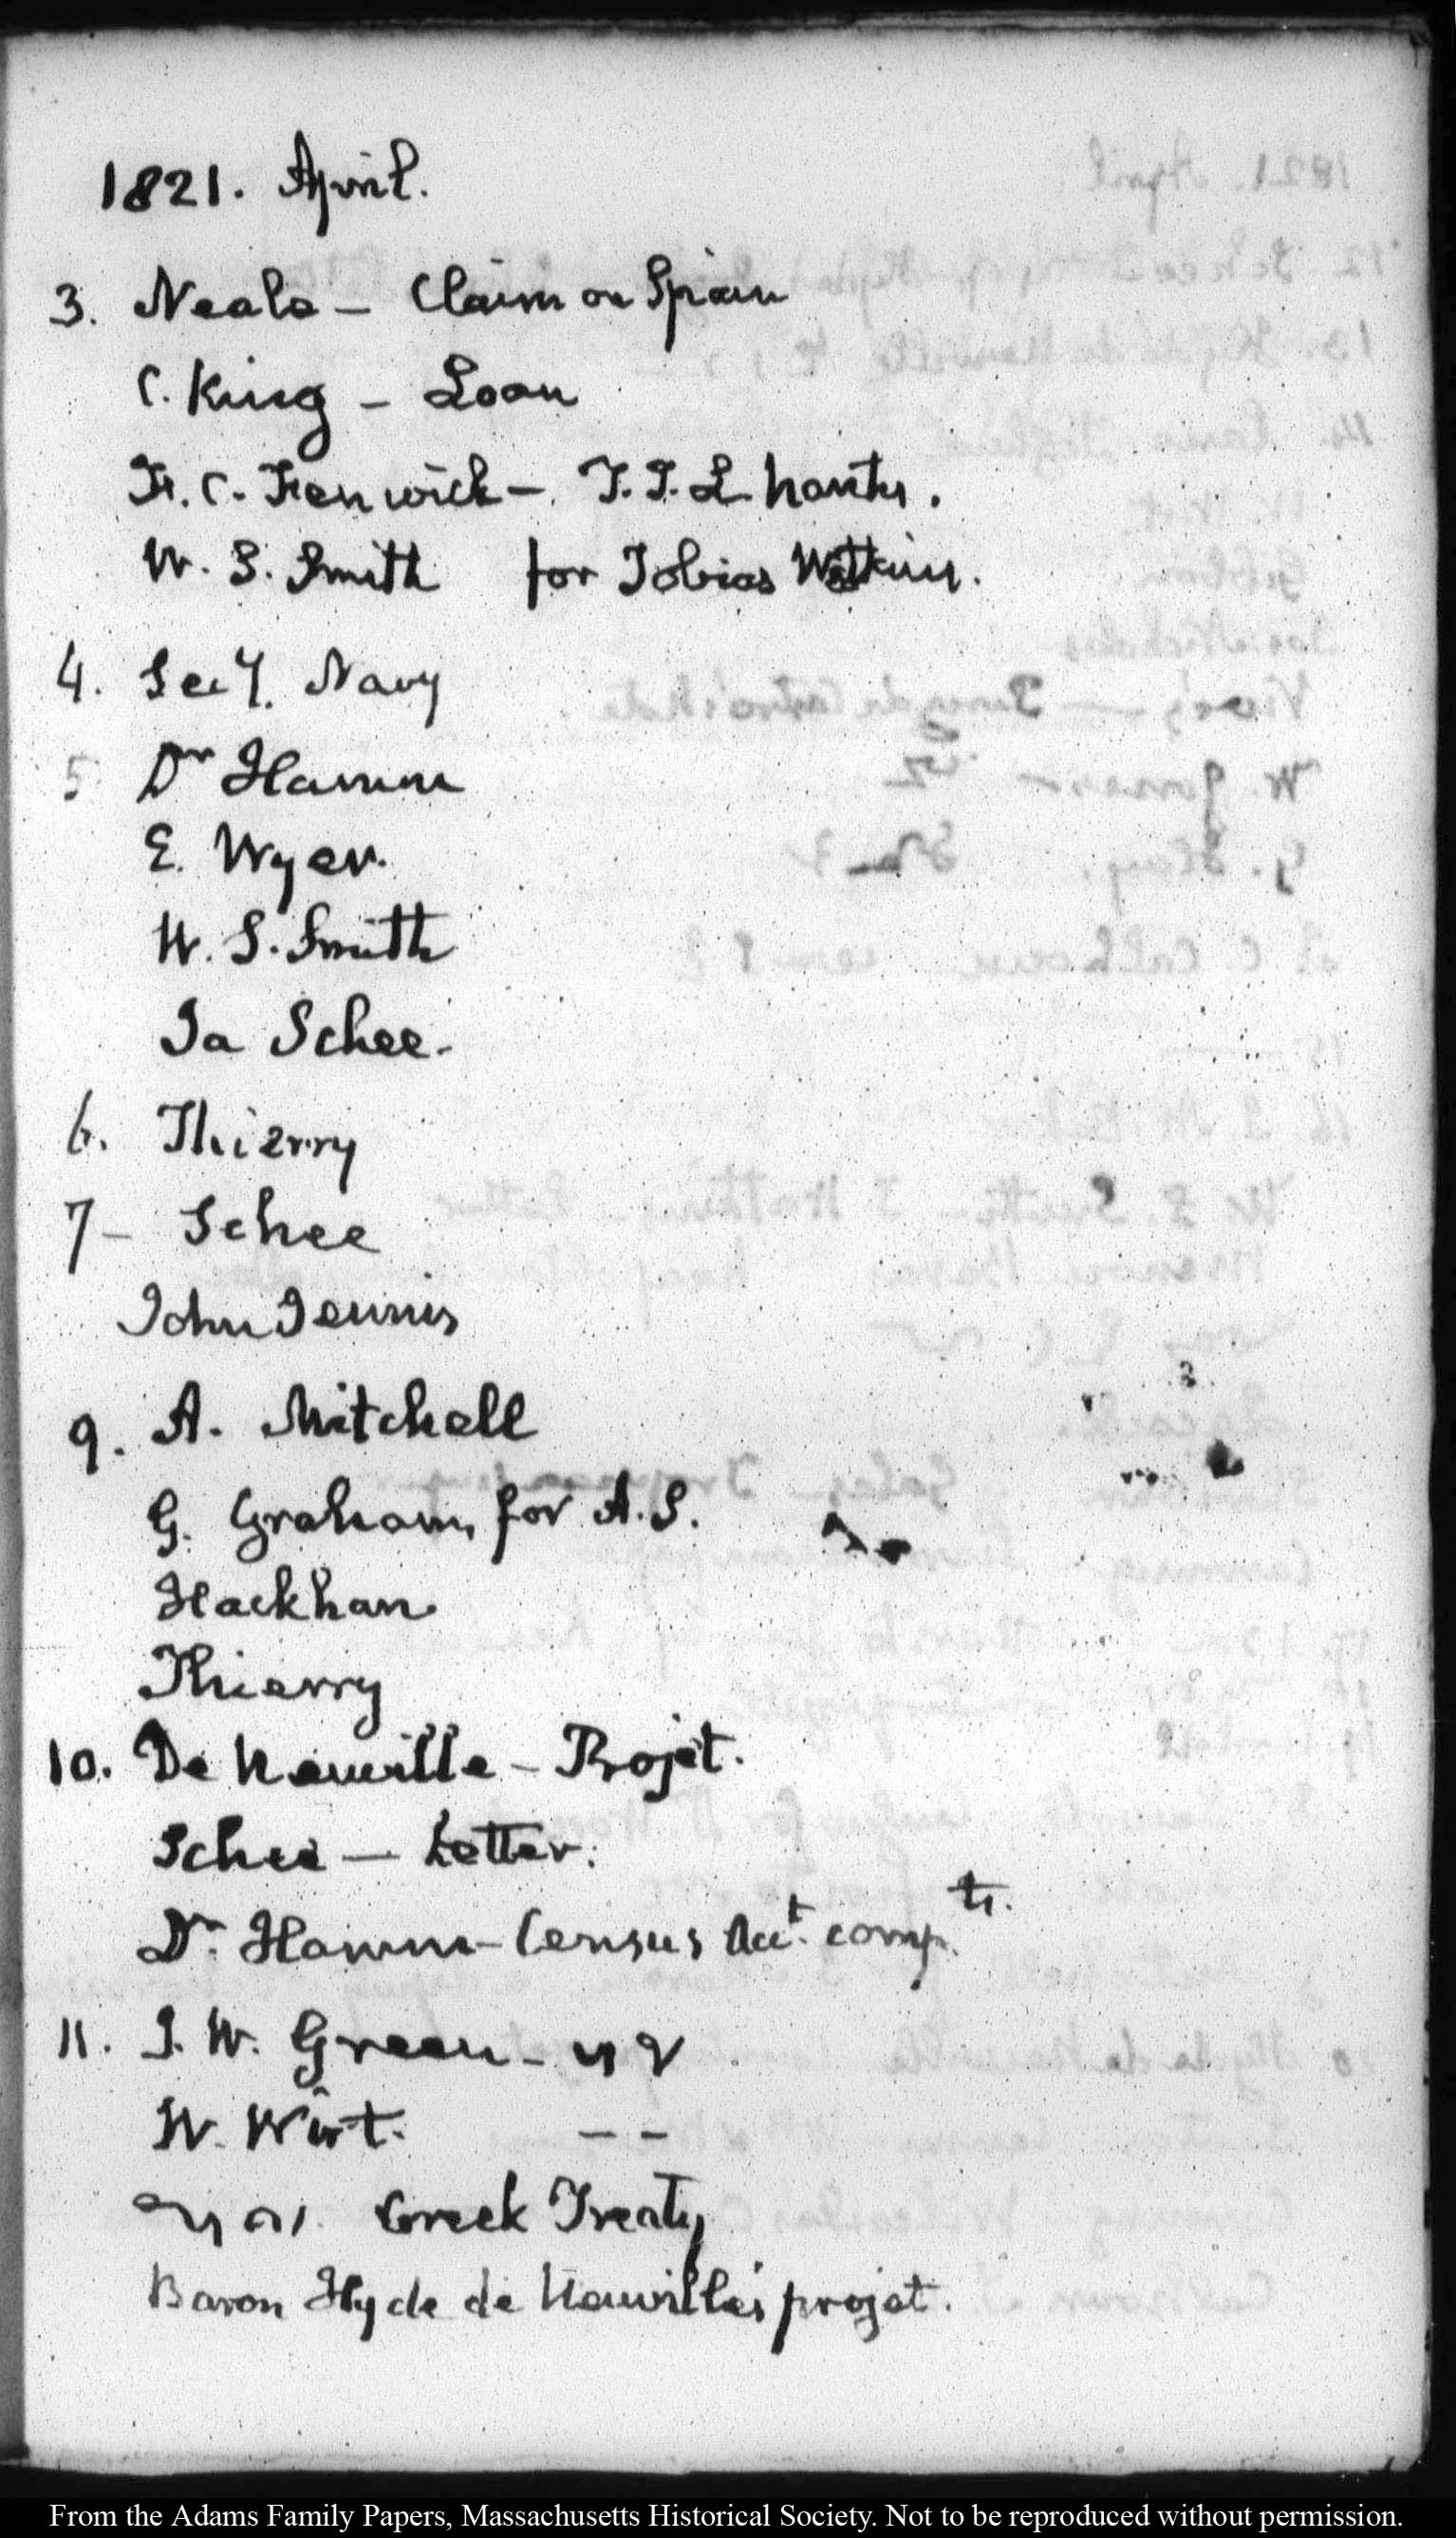 1821. April.
3. Neale – Claim on Spain
C. King – Loan
Fr. C. Fenwick – T. T. L
W. S. Smith for Tobias Watkins.
4. Secy. Navy
5 Dr Hamm
E. Wyer.
W. S. Smith
Ja Schee.
6. Thierry
7 – Schee
John Dennis
9. A. Mitchell
G. Graham, for A. S.
Hackhan
Thierry
10. De Neuville – Projet.
Schee – Letter.
Dr. Hamm – Census Acct. comp.
11. J. W. Green –
W. Wirt. – –
Creek Treaty
Baron Hyde de Neuville's projet.
From the Adams Family Papers, Massachusetts Historical Society. Not to be reproduced without permission.